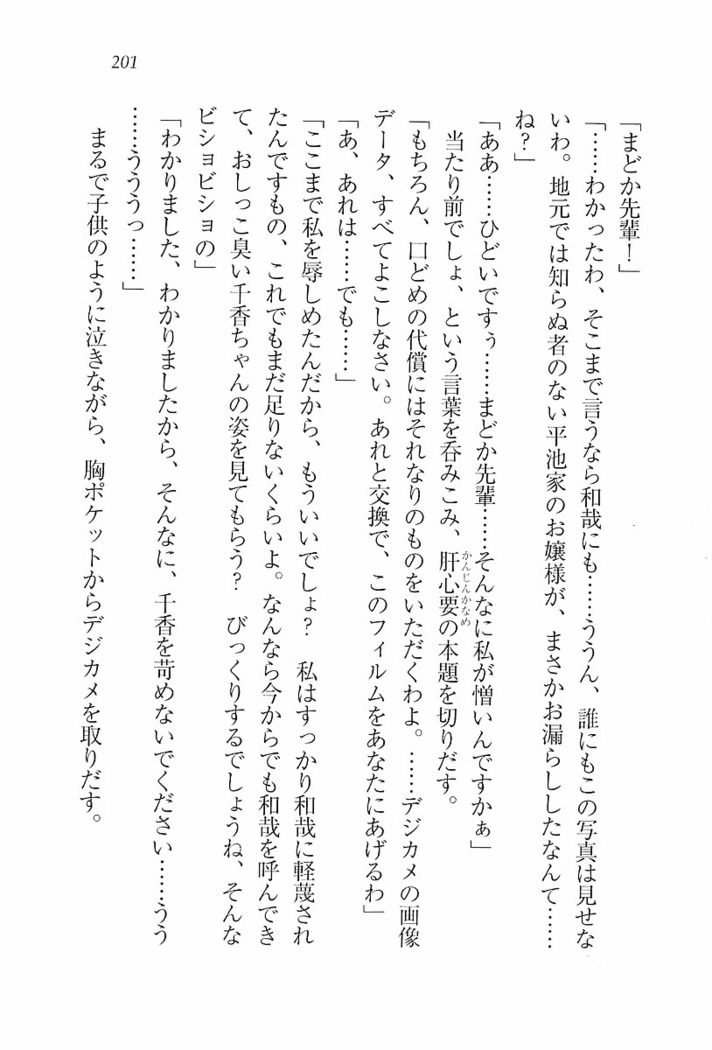 201
「まどか先輩！」
「……わかったわ、そこまで言うなら和哉にも……ううん、誰にもこの写真は見せな
いわ。地元では知らぬ者のない平池家のお嬢様が、まさかお漏らししたなんて……
ね？」
「ああ……ひどいですぅ……まどか先輩……そんなに私が憎いんですかぁ」
当たり前でしょ、という言葉を呑みこみ、肝心要の本題を切りだす。
かんじんかなめ
「もちろん、口どめの代償にはそれなりのものをいただくわよ。……デジカメの画像
データ、すべてよこしなさい。あれと交換で、このフィルムをあなたにあげるわ」
「あ、あれは……でも……」
「ここまで私を辱しめたんだから、もういいでしょ？　私はすっかり和哉に軽蔑され
たんですもの、これでもまだ足りないくらいよ。なんなら今からでも和哉を呼んでき
て、おしっこ臭い千香ちゃんの姿を見てもらう？　びっくりするでしょうね、そんな
ビショビショの」
「わかりました、わかりましたから、そんなに、千香を苛めないでください……うう
……うううっ……」
まるで子供のように泣きながら、胸ポケットからデジカメを取りだす。